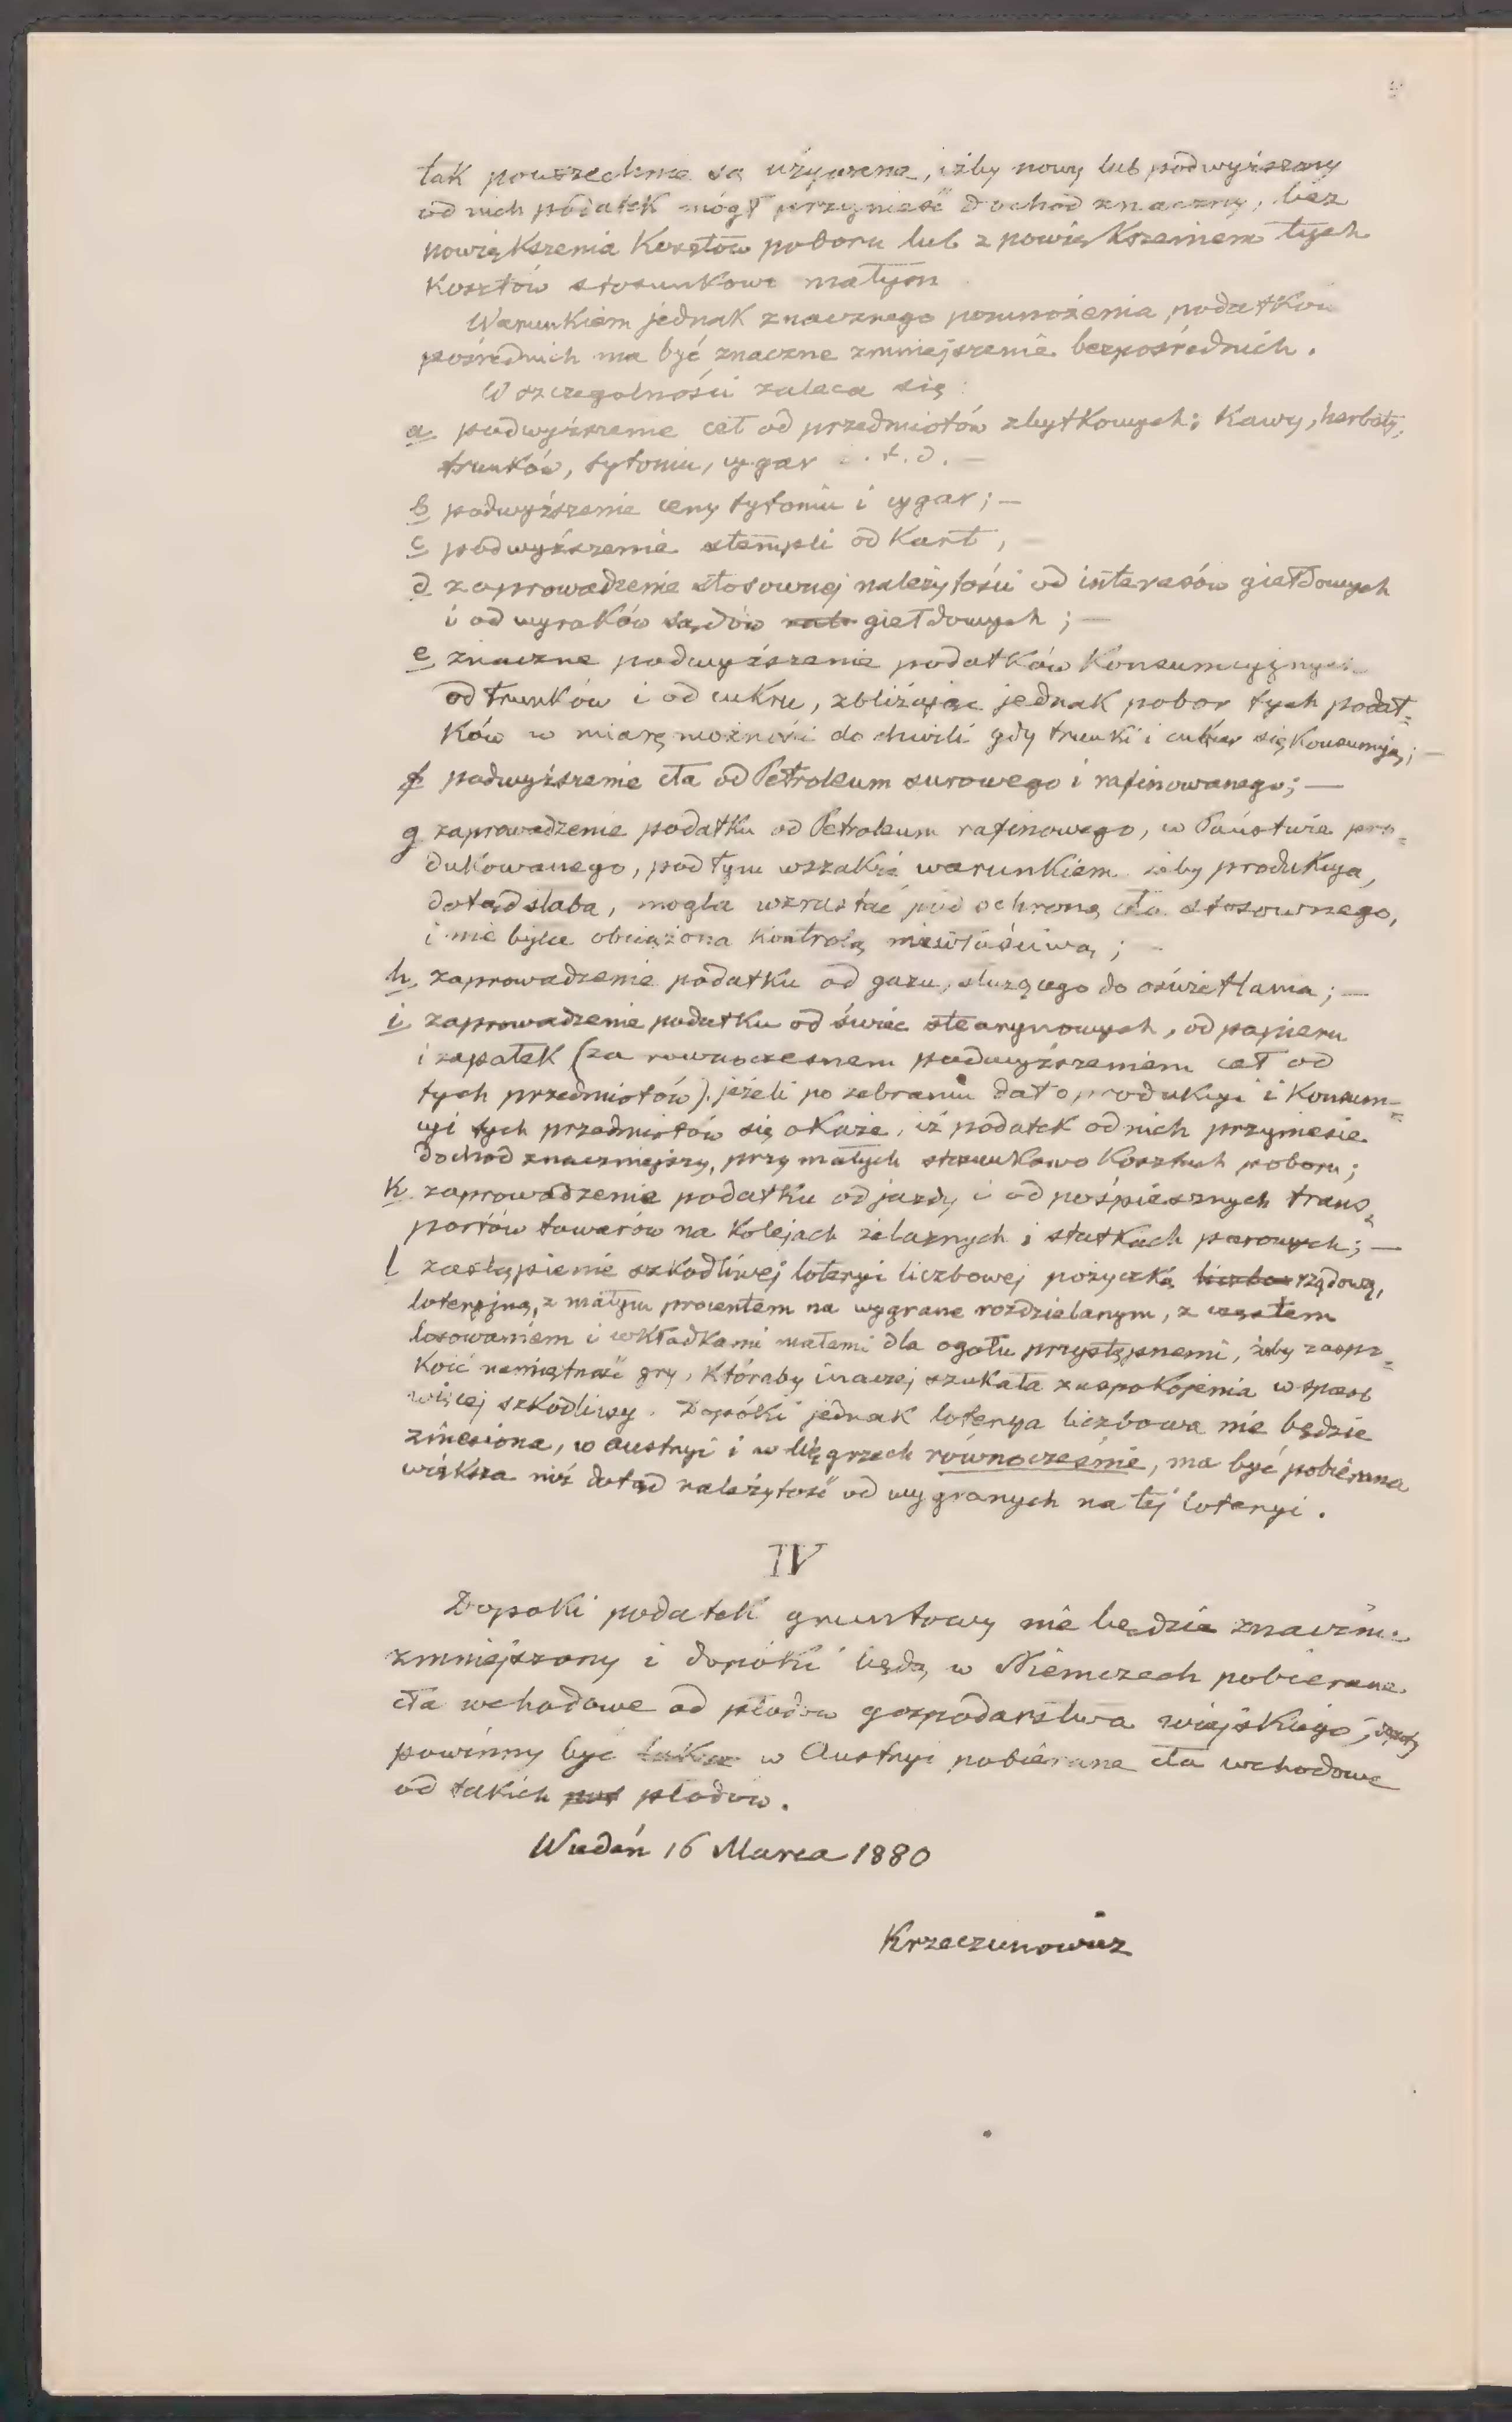 tak powszechnie są używane, iżby nowy lub podwyższony
od nich podatek mógł przynieść dochod znaczny, bez
powiększenia Kosztów poboru lub z powiększeniem tych
Kosztów stosunkowo małym
Warunkiem jednak znacznego pomnożenia podatków
pośrednich ma być znaczne zmniejszenie bezpośrednich.
W szczególności zaleca się:
a podwyższenie ceł od przedmiotów zbytkowych: Kawy, herbaty,
trunków, tytoniu, cygar i.t.d. —
b podwyższenie ceny tytoniu i cygar; —
c podwyższenie stempli od Kart, —
d zaprowadzenie stosownej należytości od interesów giełdowych
i od wyroków sądów giełdowych; —
e znaczne podwyższenie podatków Konsumcyjnych
od trunków i od cukru, zbliżając jednak pobor tych podat=
ków w miarę możności do chwili gdy trunki i cukier się Konsumują; —
f podwyższenie cła od Petroleum surowego i rafinowanego; —
g zaprowadzenie podatku od Petroleum rafinowego, w Państwie pro=
dukowanego, pod tym wszakże warunkiem żeby produkcya,
dotąd słaba, mogła wzrastać pod ochroną cła stosownego,
i nie była obciążona kontrolą niewłaściwą; —
h zaprowadzenie podatku od gazu, służącego do oświetlania; —
i zaprowadzenie podatku od świec stearynowych, od papieru
i zapałek (za rownoczesnem podwyższeniem ceł od
tych przedmiotów), jeżeli po zebraniu dat o produkcyi i Konsum=
cyi tych przedmiotów się okaże, iż podatek od nich przyniesie
dochod znaczniejszy, przy małych stosunkowo Kosztach poboru;
k zaprowadzenie podatku od jazdy i od pośpiesznych trans=
portów towarów na Kolejach żelaznych i statkach parowych; —
l zastąpienie szkodliwej loteryi liczbowej pożyczką liczbo rządową,
loteryjną, z małym procentem na wygrane rozdzielanym, z częstem
losowaniem i wkładkami małemi dla ogółu przystępnemi, żeby zaspo=
koić namiętność gry, któraby inaczej szukała zaspokojenia w sposob
więcej szkodliwy. Dopóki jednak loterya liczbowa nie będzie
zniesiona, w Austryi i w Węgrzech równocześnie, ma być pobierana
większa niż dotąd należytość od wygranych na tej loteryi.
IV
Dopoki podatek gruntowy nie będzie znacznie
zmniejszony i dopóki będą w Niemczech pobierane
cła wchodowe od płodów gospodarstwa wiejskiego,
powinny być także w Austryi pobierane cła wchodowe
od takich płodów.
Wiedeń 16 Marca 1880
Krzeczunowicz